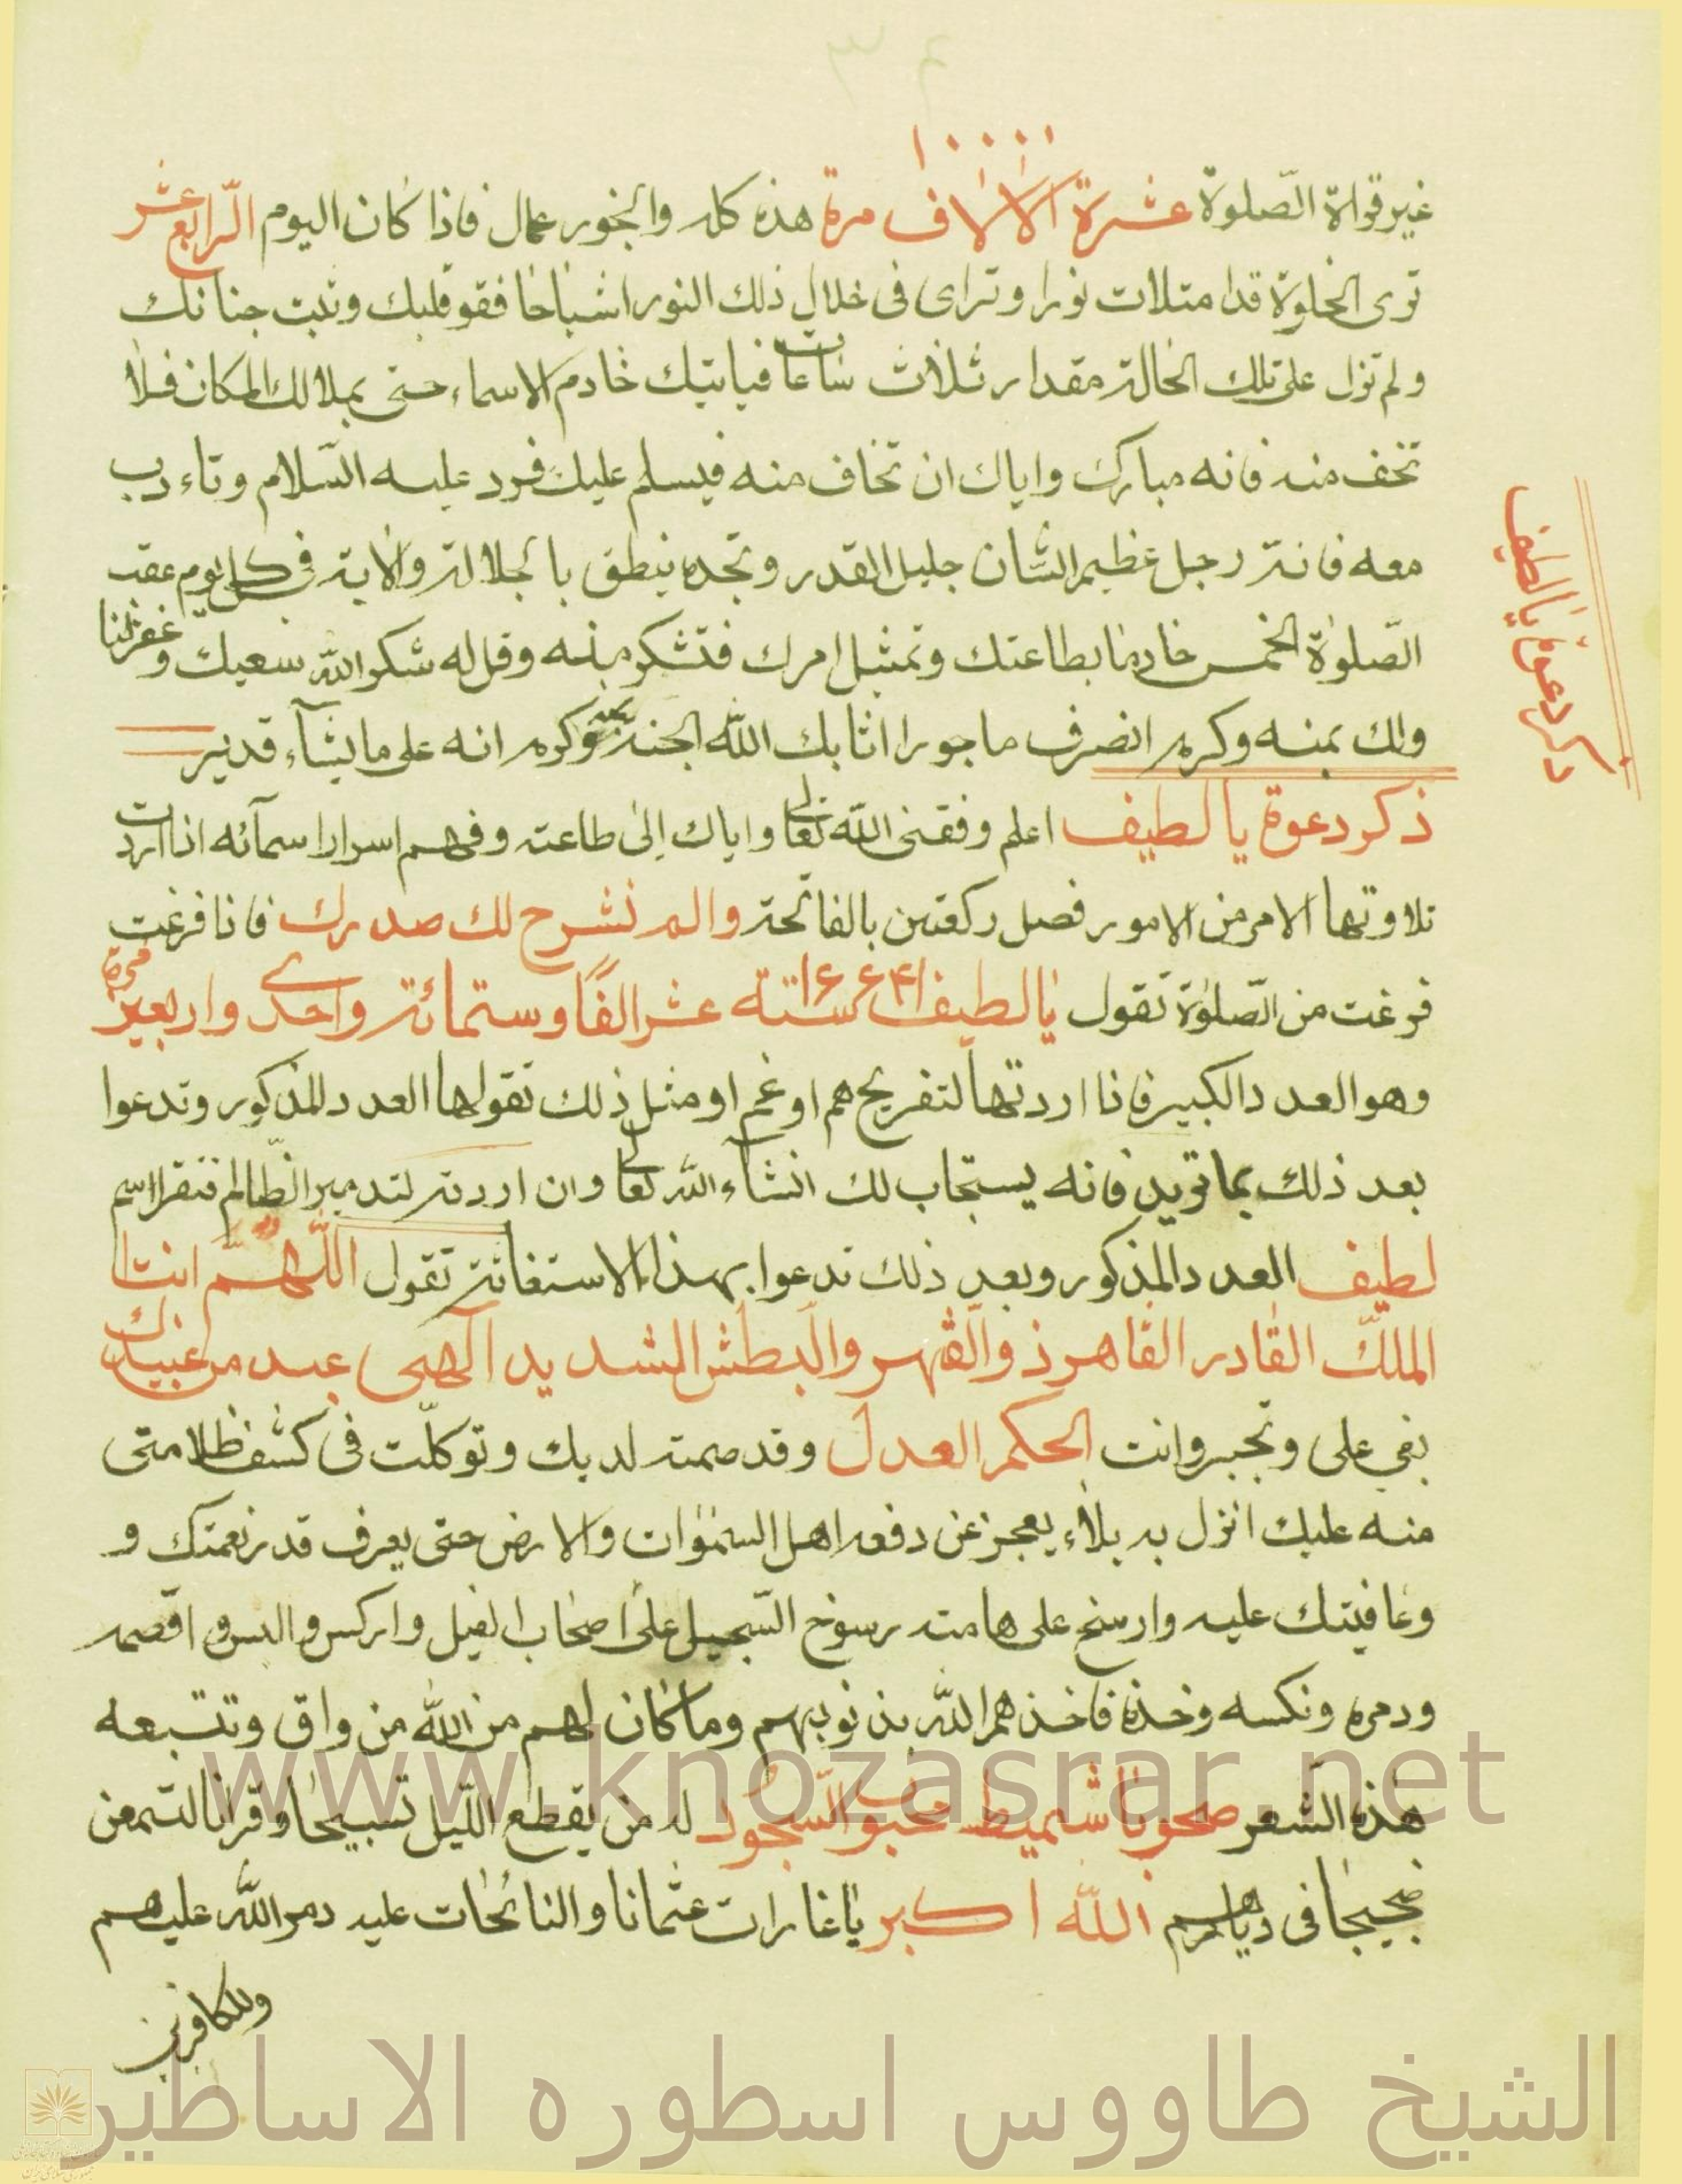 ١٠٠٠٠
غير قراة الصّلوة عشرة الالاف مرة هذه كله والبخور عمال فاذا كان اليوم الرّابع عشر
ترى الخلوة قد امتلات نورا وتراى فى خلال ذلك النور اشباحا فقو قلبك وثبت جنانك
ولم تزل على تلك الحالة مقدار ثلاث ساعات فياتيك خادم الاسماء حتى يملا لك المكان فلا
تخف منه فانه مبارك واياك ان تخاف منه فيسلم عليك فرد عليه السّلام وتاءدب
معه فانه رجل عظيم الشان جليل القدر وتجده ينطق بالجلالة والاية فى كل يوم عقب
الصّلوة الخمس خادما بطاعتك وتمثيل امرك فتشكر منه وقل له شكر الله سعيك وغفر لنا
ولك بمنه وكرمه انصرف ماجورا اثابك الله الجنة بمنه وكرمه انه على ما يشآء قدير
ذكر دعوة يا لطيف اعلم وفقنى الله تعالى واياك الى طاعته وفهم اسرار اسمآئه اذا اردت
تلاوتها الامر من الامور فصل ركعتين بالفاتحة والم نشرح لك صدرك فاذا فرغت
فرغت من الصّلوة تقول يا لطيف ١٦٦٤١ ستة عشر الفًا وستمائة واحدى واربعين مرة
وهو العدد الكبير فاذا اردتها لتفريج هم او غم او مثل ذلك تقولها العدد المذكور وتدعوا
بعد ذلك بما تريد فانه يستجاب لك انشآء الله تعالى وان اردته لتدمير الظّالم فتقرا اسم
لطيف العدد المذكور وبعد ذلك تدعوا بهذا الاستغاثة تقول اللّهمّ انت
الملك القادر القاهر ذو القهر والبطش الشديد آلهى عبد من عبيدك
بغى على وتجبر وانت الحكم العدل وقد صمته لديك وتوكلّت فى كشف ظلامتى
منه عليك انزل به بلاء يعجز عن دفعه اهل السموات والارض حتى يعرف قدر نعمتك و
وعافيتك عليه وارسخ على هامته رسوخ السّجيل على اصحاب الفيل واركس و اقصمه
ودمره ونكسه وخذه فاخذهم الله بذنوبهم وما كان لهم من الله من واق وتتبعه
هذه الشعر السّجود له من يقطع اللّيل تسبيحا وقرانا لتسمعن
فى ديارهم الله اكبر يا غارات عثمانا والنائحات عليه دمر الله عليهم
وللكافرين
ذكر دعوة يا لطيف
www.knozasrar.net
الشيخ طاووس اسطوره الاساطير